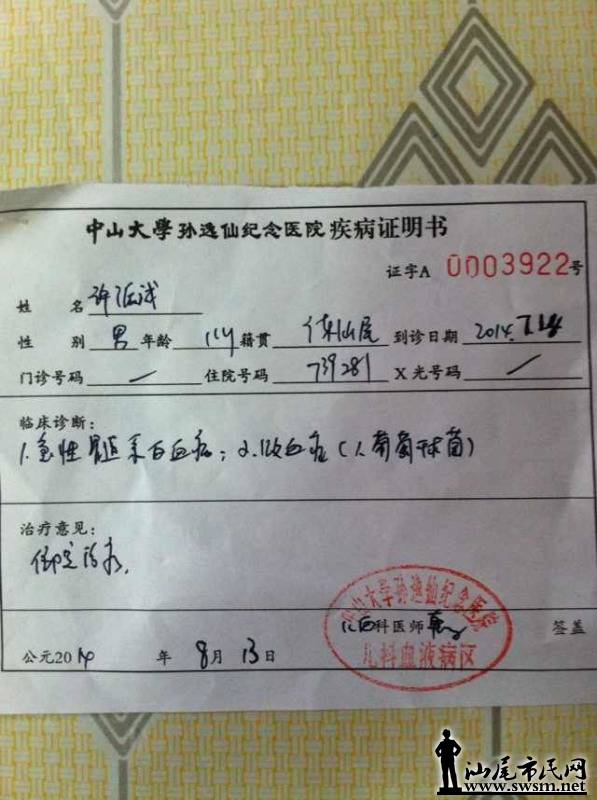 中山大學孙逸仙纪念医院疾病证明书
证字A 0003922号
姓 名 许
性 别 男 年龄 11y 籍贯 广东汕尾 到诊日期 2014.7.14
门诊号码 / 住院号码 739281 X光号码 /
临床诊断:
1.急性髓系白血病; 2.败血症(人葡萄球菌)
治疗意见:
住院治疗.
儿科医师 签盖
中山大学孙逸仙纪念医院
儿科血液病区
公元2014 年 8月 13日
汕尾市民网
www.swsm.net